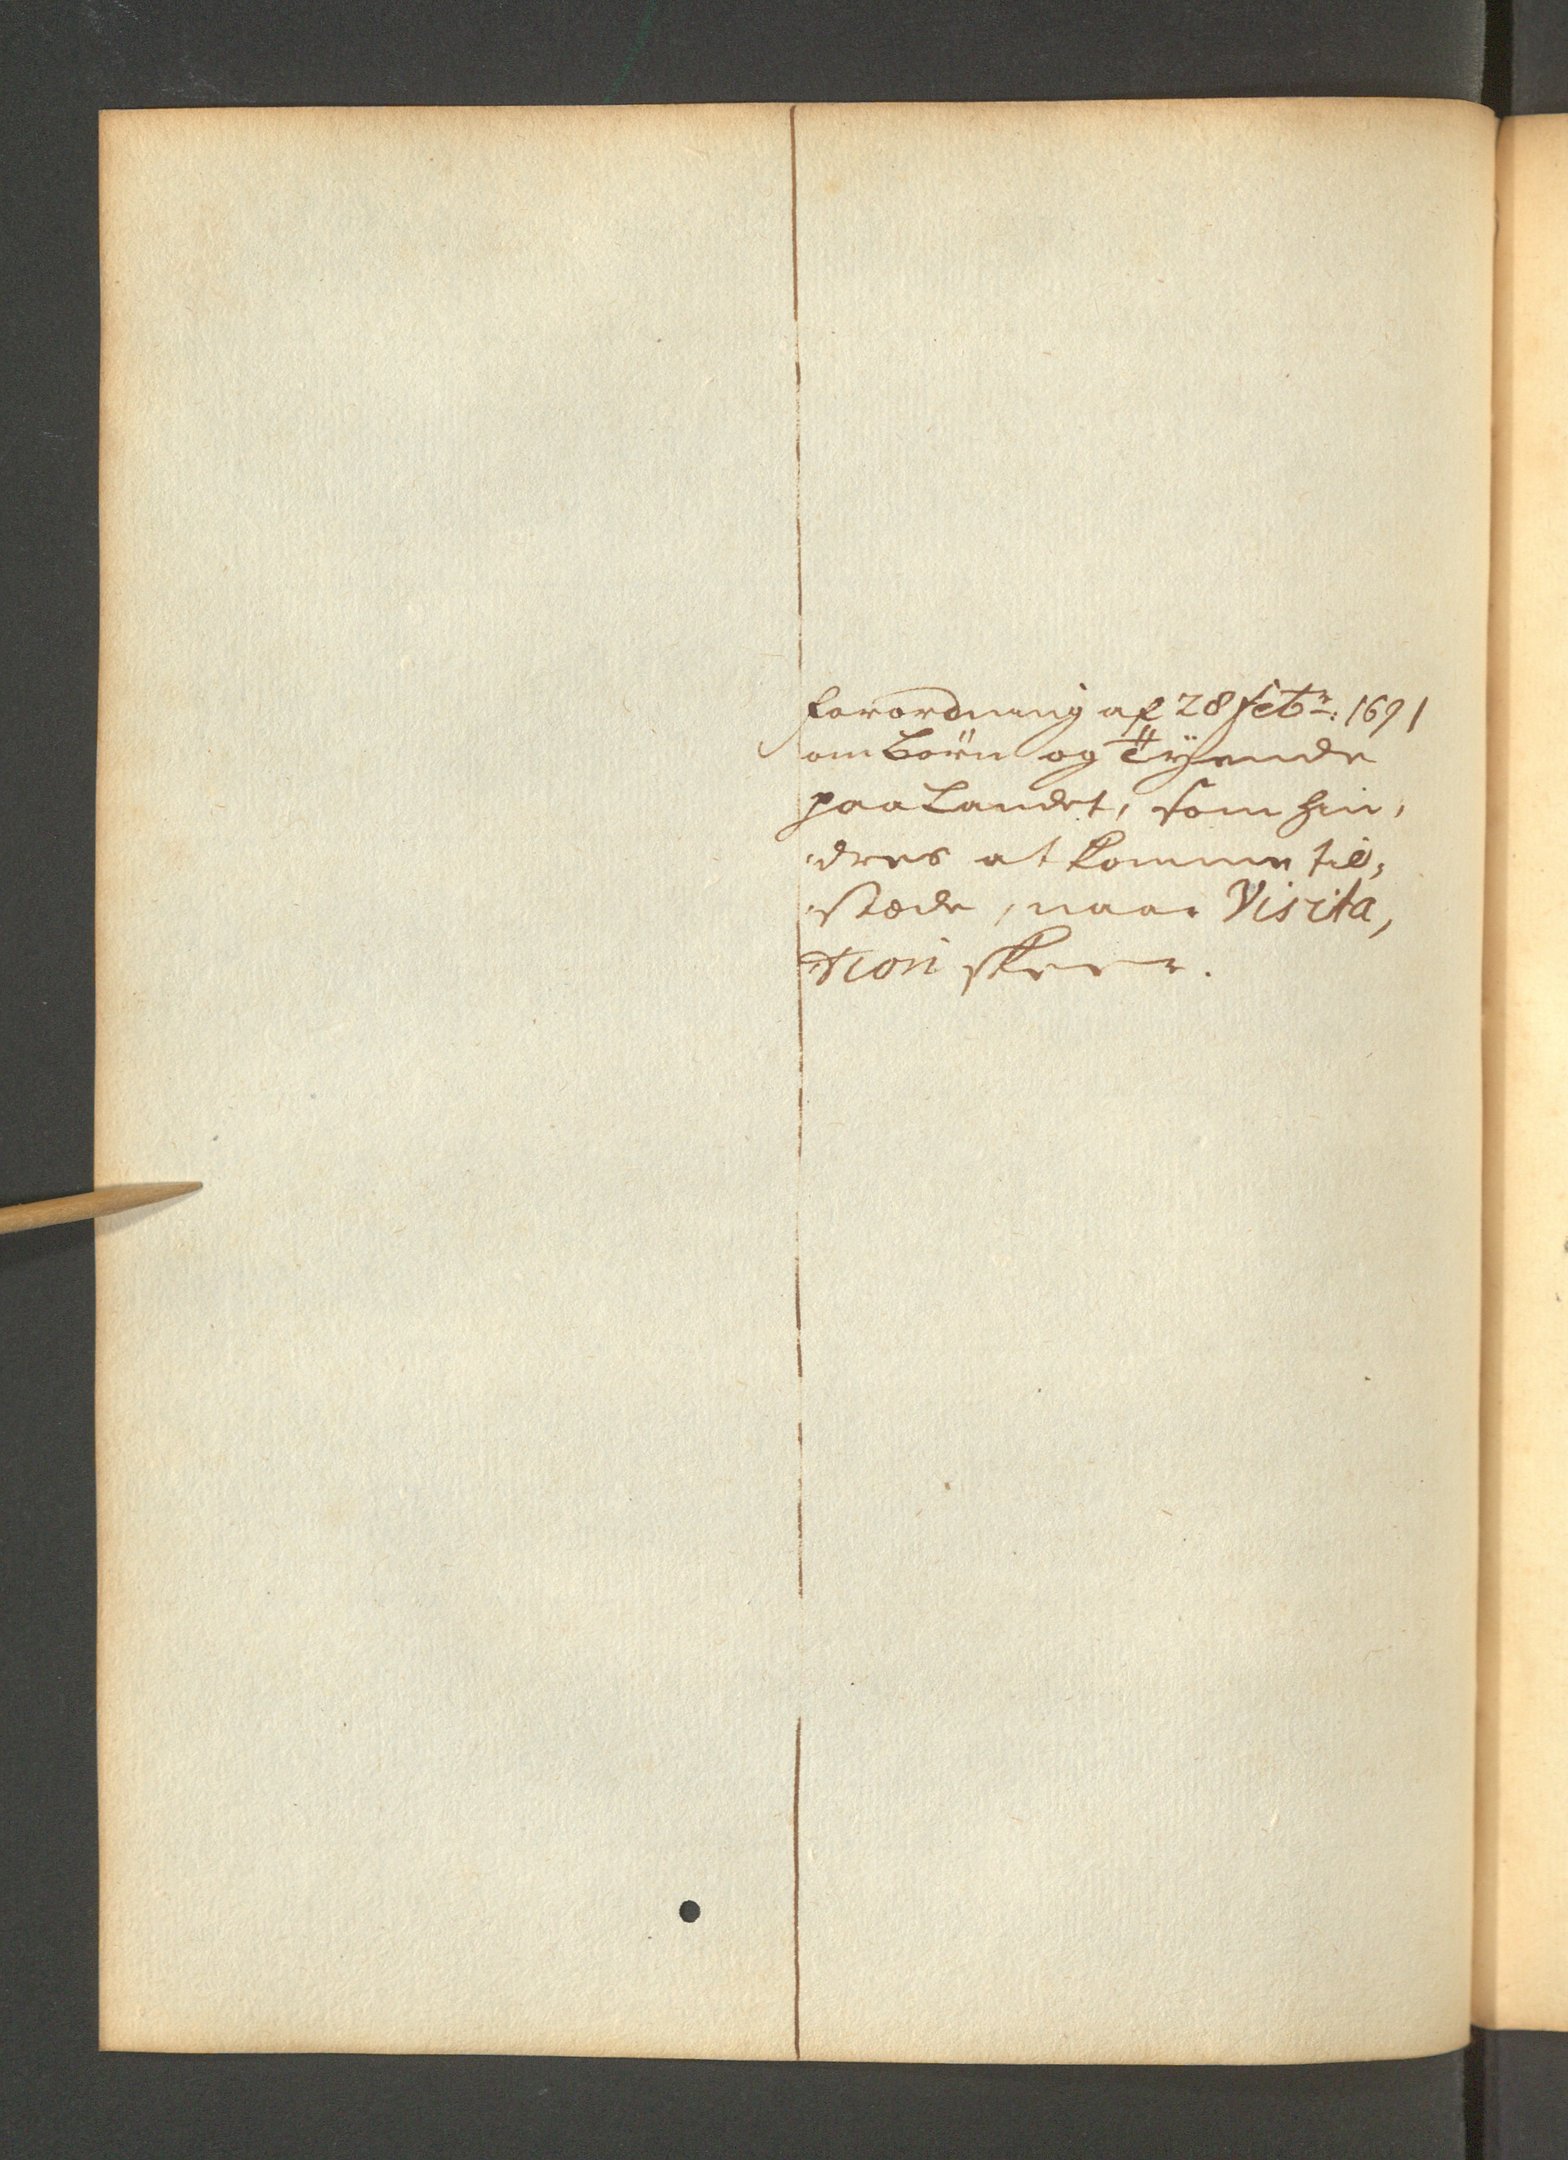 Forordning af 28 febr: 1691
om Börn og Tÿende
paa Landet, som hin,
dres at komme til,
stæde, naar Visita,
tion skeer.